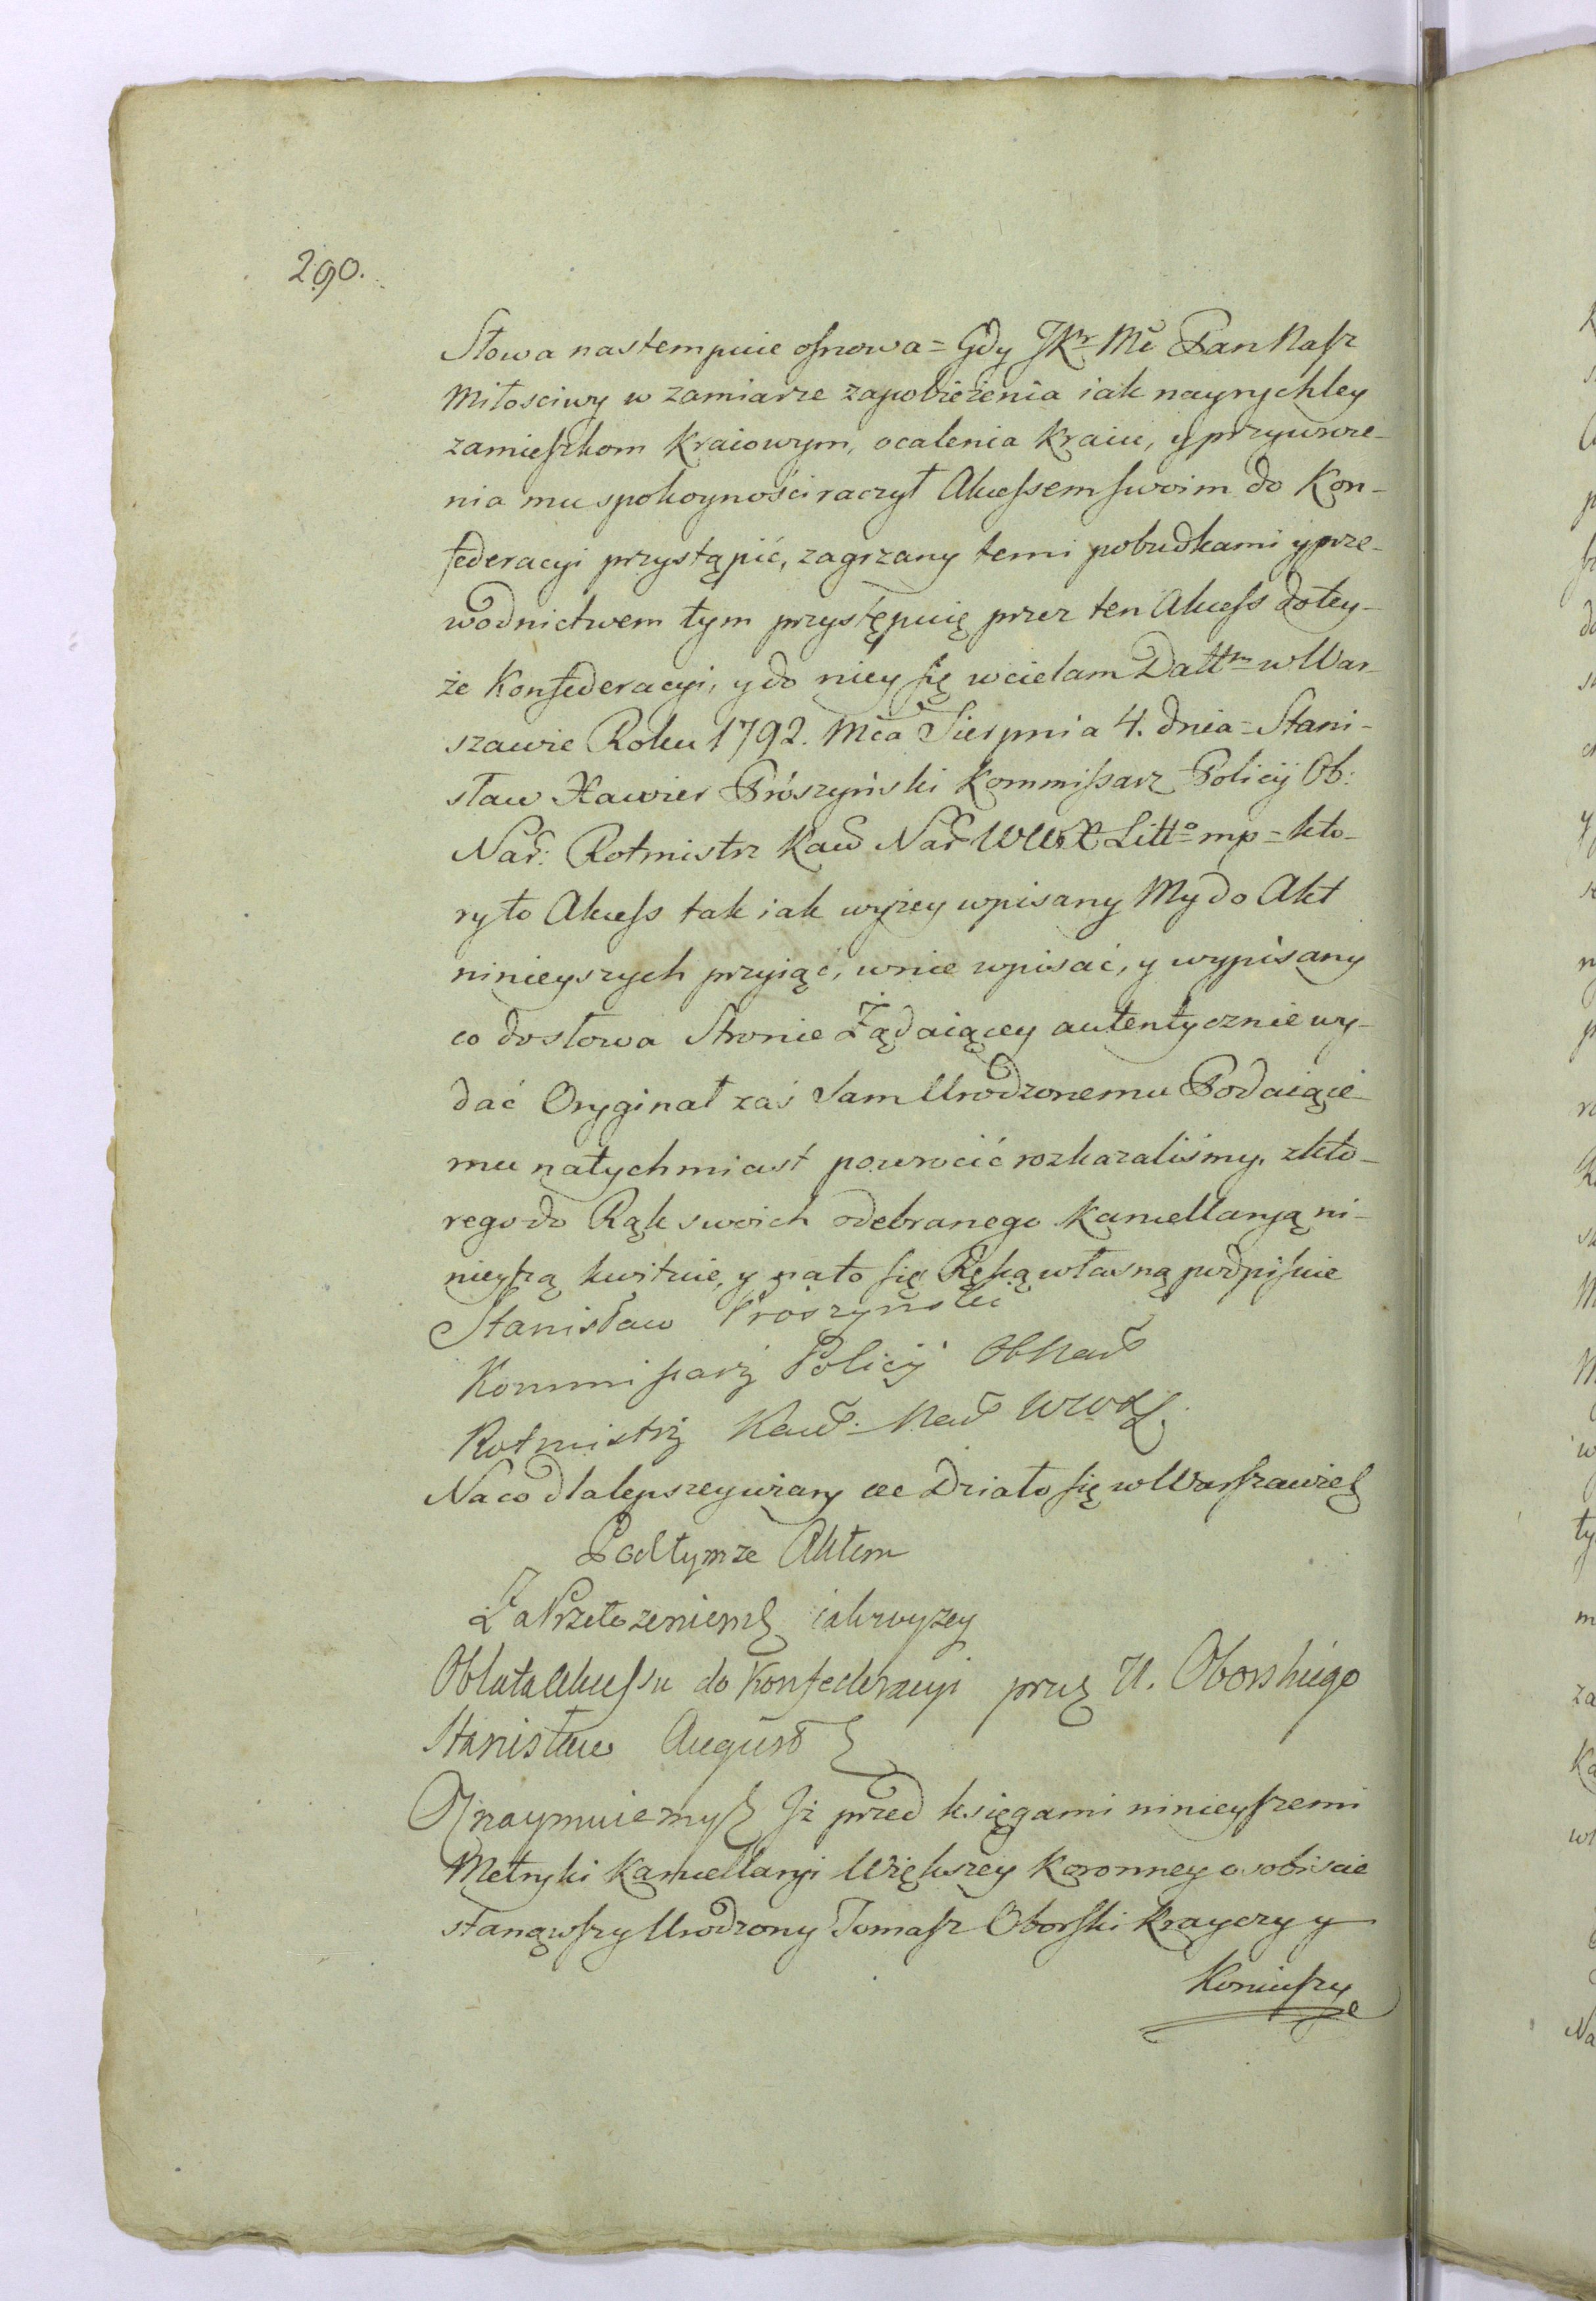 290.
Słowa nastempuie osnowa = Gdy JKr Mć Pan Nasz
Miłosciwy w zamiarze zapobieżenia iak nayrychley
zamieszkom kraiowym, ocalenia kraiu, y przywroce-
nia mu spokoyności raczył Akcessem swoim do Kon-
federacyi przystąpić, zagrzany temi pobudkami y prze-
wodnictwem tym przystępuię przez ten Akcess do tey-
że Konfederacyi, y do niey się wcielam Dattm w War-
szawie Roku 1792. Mca Sierpnia 4. dnia = Stani-
sław Xawier Prószyński Kommissarz Policyi Ob:
Nar: Rotmistrz Kaw Nar WWX Litto mp = kto-
ry to Akcess tak iak wyżey wpisany My do Akt
ninieyszych przyiąć, w nie wpisać, y wypisany
co do słowa Stronie Żądaiącey autentycznie wy-
dać Oryginał zaś Sam Urodzonemu Podaiące-
mu natychmiast powrocić rozkazaliśmy. z kto-
rego do Rąk swoich odebranego Kancellaryą ni-
nieyszą kwituie, y na to się Ręką własną podpisuie
Stanisław Prószyński
Kommissarz Policyi ObNar
Rotmistrz Kaw. Nar WWXL
Na co dla lepszey wiary etc Działo się w Warszawie
Pod tymże Aktem
Za Przełożeniem iak wyżey
Oblata Akcessu do Konfederacyi przez U. Oborskiego
Stanisław August
Oznaymuiemy Iż przed księgami ninieyszemi
Metryki Kancellaryi Większey Koronney osobiscie
stanąwszy Urodzony Tomasz Oborski Krayczy y
Koniuszy